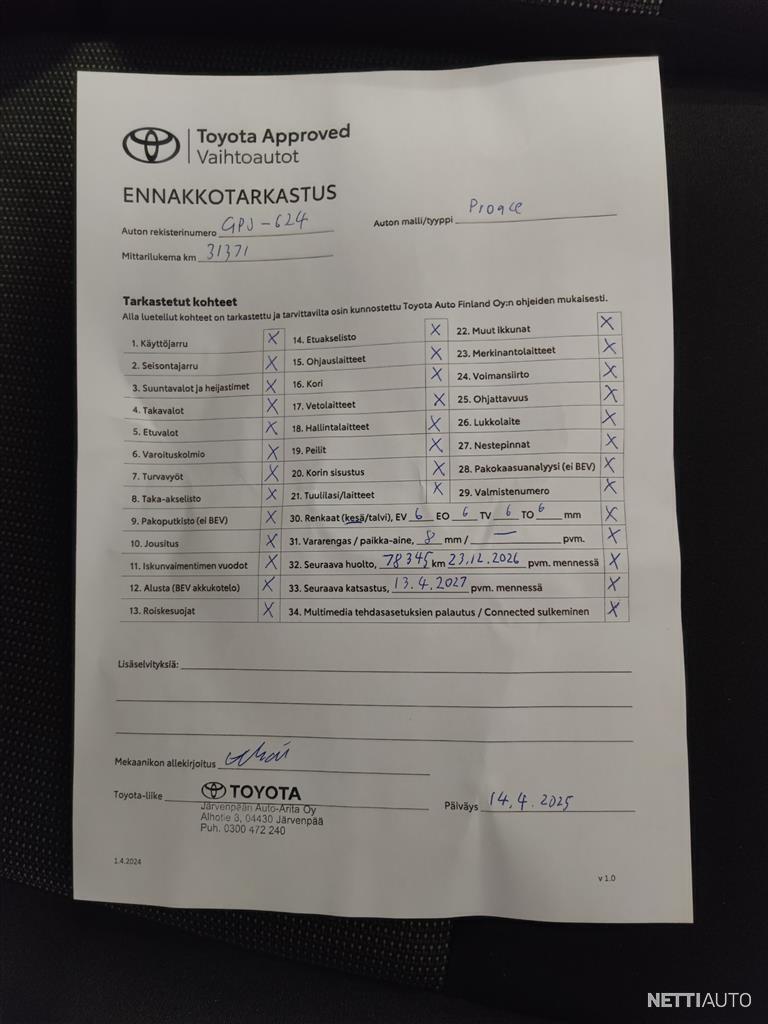 Toyota Approved
Vaihtoautot
ENNAKKOTARKASTUS
Auton rekisterinumero GPJ-624
Auton malli/tyyppi Proace
Mittarilukema km 31371
Tarkastetut kohteet
Alla luetellut kohteet on tarkastettu ja tarvittavilta osin kunnostettu Toyota Auto Finland Oy:n ohjeiden mukaisesti.
1. Käyttöjarru X
2. Seisontajarru X
3. Suuntavalot ja heijastimet X
4. Takavalot X
5. Etuvalot X
6. Varoituskolmio X
7. Turvavyöt X
8. Taka-akselisto X
9. Pakoputkisto (ei BEV) X
10. Jousitus X
11. Iskunvaimentimen vuodot X
12. Alusta (BEV akkukotelo) X
13. Roiskesuojat X
14. Etuakselisto X
15. Ohjauslaitteet X
16. Kori X
17. Vetolaitteet X
18. Hallintalaitteet X
19. Peilit X
20. Korin sisustus X
21. Tuulilasi/laitteet X
22. Muut ikkunat X
23. Merkinantolaitteet X
24. Voimansiirto X
25. Ohjattavuus X
26. Lukkolaite X
27. Nestepinnat X
28. Pakokaasuanalyysi (ei BEV) X
29. Valmistenumero X
30. Renkaat (kesä/talvi), EV 6 EO 6 TV 6 TO 6 mm X
31. Vararengas / paikka-aine, 8 mm / — pvm. X
32. Seuraava huolto, 78345 km 23.12.2026 pvm. mennessä X
33. Seuraava katsastus, 13.4.2027 pvm. mennessä X
34. Multimedia tehdasasetuksien palautus / Connected sulkeminen X
Lisäselvityksiä:
Mekaanikon allekirjoitus
Toyota-liike TOYOTA
Järvenpään Auto-Arita Oy
Alhotie 3, 04430 Järvenpää
Puh. 0300 472 240
Päiväys 14.4.2025
1.4.2024
v 1.0
NETTIAUTO